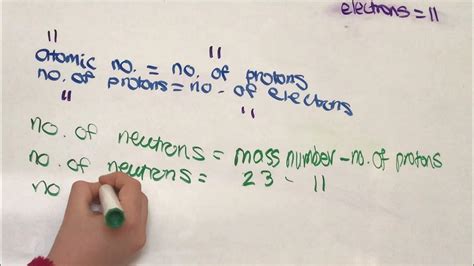 electrons = 11
11 11
atomic no. = no. of protons
no. of protons = no. of electrons
11 11
no. of neutrons = mass number - no. of protons
no. of neutrons = 23 - 11
no